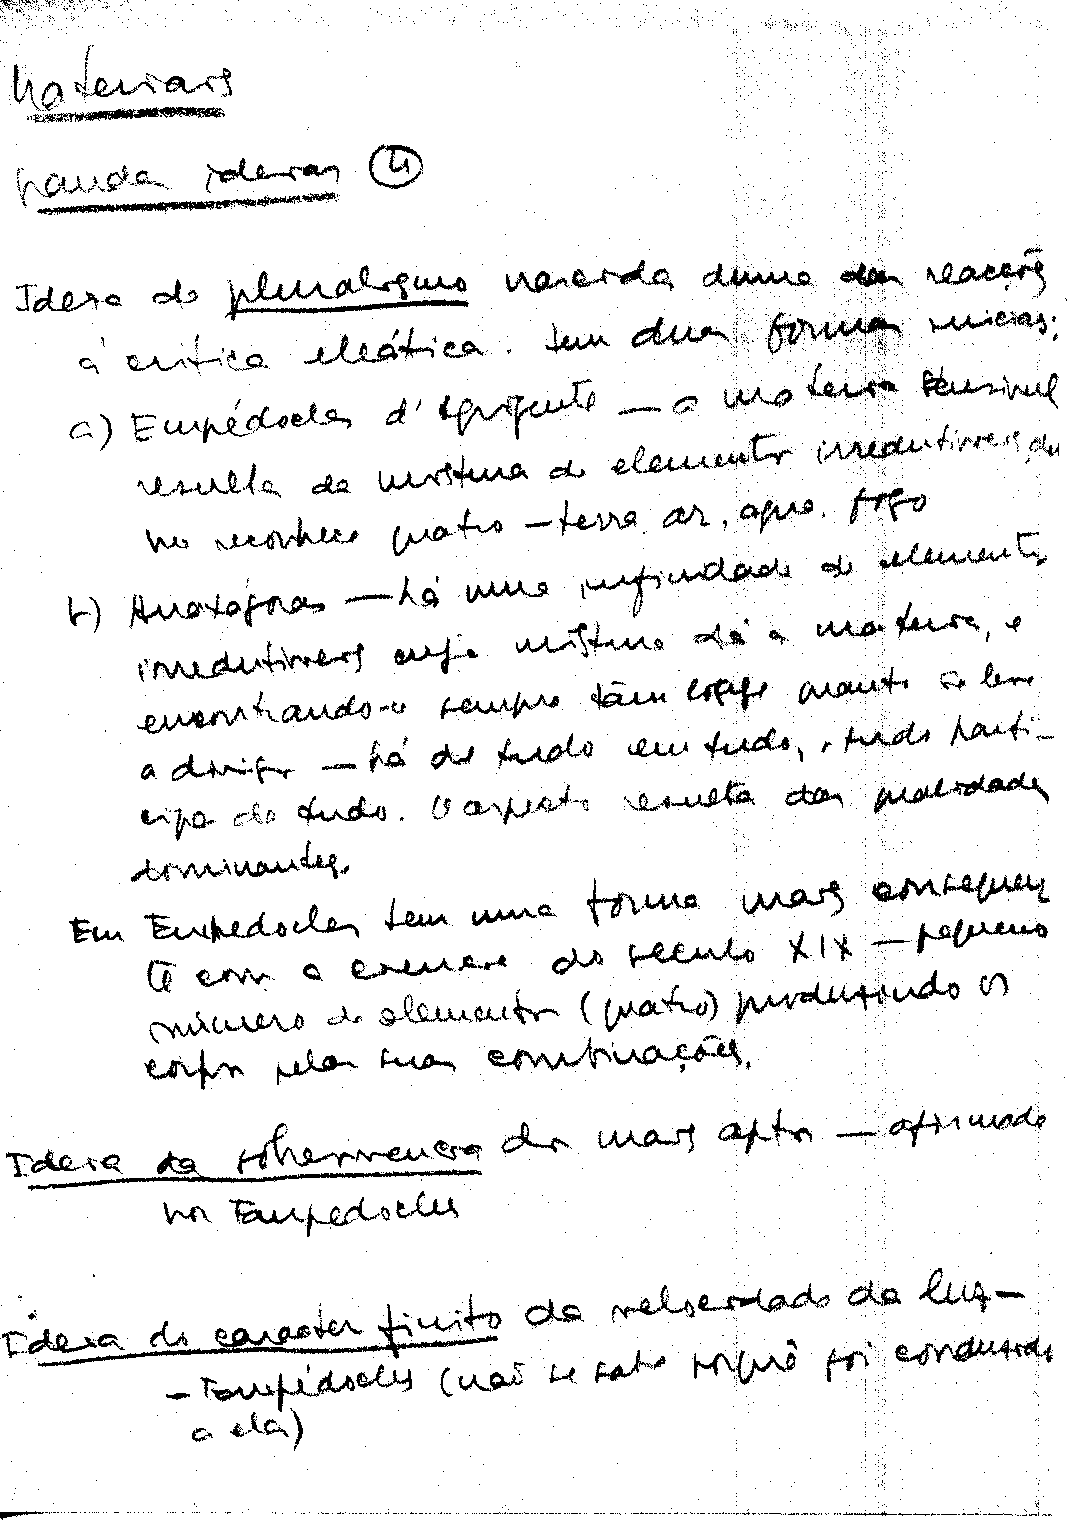 Materiais
grandes ideias ④
Ideia do pluralismo nascida duma das reacções
à crítica eleática. Tem duas formas iniciais:
a) Empédocles d'Agrigento — a matéria sensível
resulta da mistura de elementos irredutíveis, de
que reconhece quatro — terra ar, água. fogo
b) Anaxágoras — há uma infinidade de elementos
irredutíveis cuja mistura dá a matéria, e
encontrando-se sempre quanto se leve
a divisão — há de tudo em tudo, e tudo parti-
cipa de tudo. O aspecto resulta das qualidades
dominantes.
Em Empédocles tem uma forma mais consequen
te com a ciência do século XIX — pequeno
número de elementos (quatro) produzindo os
corpos pelas suas combinações.
Ideia da sobrevivencia dos mais aptos — afirmada
por Empédocles
Ideia do caracter finito da velocidade da luz —
— Empédocles (não se sabe porquê foi conduzido
a ela)